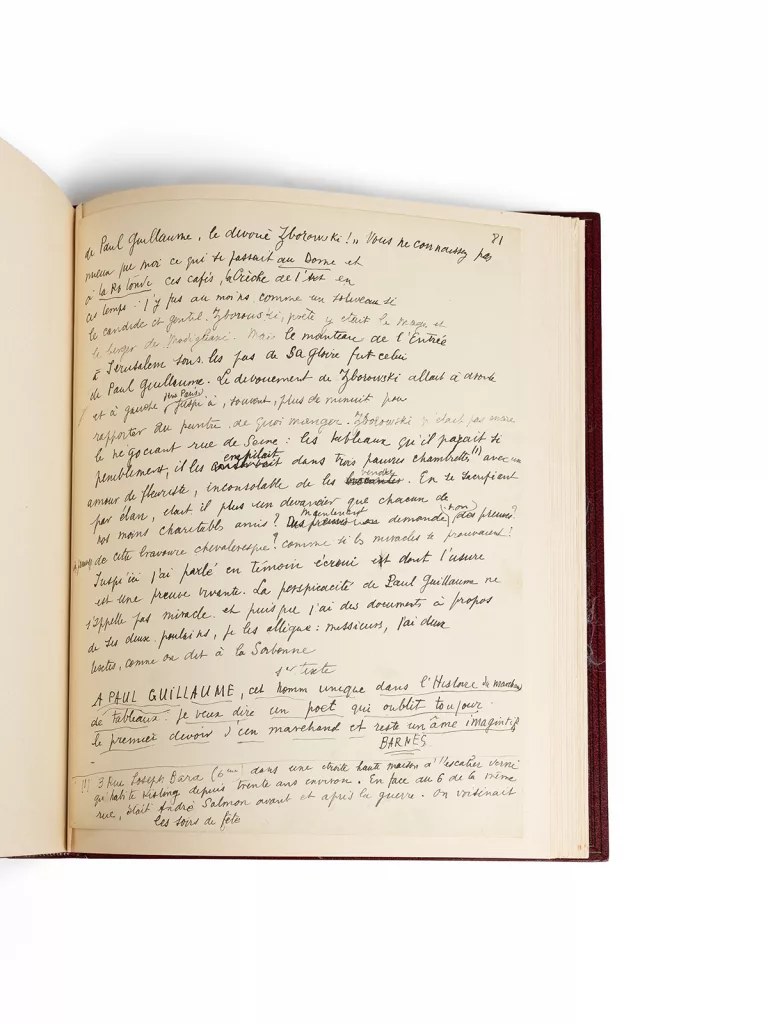 81
de Paul Guillaume, le dévoué Zborowski ! » Vous ne connaissez pas
mieux que moi ce qui se passait au Dome et
à la Rotonde ces cafés, la Crèche de l'Art en
ces temps : j'y fus au moins comme un soliveau si
le candide et gentil Zborowski, poète y était le mage et
le berger de Modigliani. Mais le manteau de l'Entrée
à Jérusalem sous les pas de sa gloire fut celui
de Paul Guillaume. Le dévouement de Zborowski allait à droite
et à gauche jusqu'à, souvent, plus de minuit pour
rapporter du peintre de quoi manger. Zborowski n'était pas encore
le négociant rue de Seine : les tableaux qu'il payait si
péniblement, il les empilait dans trois pauvres chambrettes (1) avec un
amour de fleuriste, inconsolable de les vendre. En se sacrifiant
par élan, était il plus un devancier que chacun de
nos moins charitables amis ? maintenant demande (non) des preuves ?
de cette bravoure chevaleresque ? comme si les miracles se prouvaient !
Jusqu'ici j'ai parlé en témoin écroui et dont l'usure
est une preuve vivante. La perspicacité de Paul Guillaume ne
s'appelle pas miracle et puisque j'ai des documents à propos
de ses deux poulains, je les allègue : messieurs, j'ai deux
textes, comme on dit à la Sorbonne
1er texte
A PAUL GUILLAUME, cet homm unique dans l'Histoire du marchand
de tableaux. Je veux dire un poet qui oublit toujour
le premier devoir d'un marchand et reste un âme imagintif
BARNES
(1) 3 Rue Joseph Bara (6me) dans une étroite haute maison à l'escalier verni
qu'habite Kisling depuis trente ans environ. En face au 6 de la même
rue, était André Salmon avant et après la guerre. On voisinait
les soirs de fête